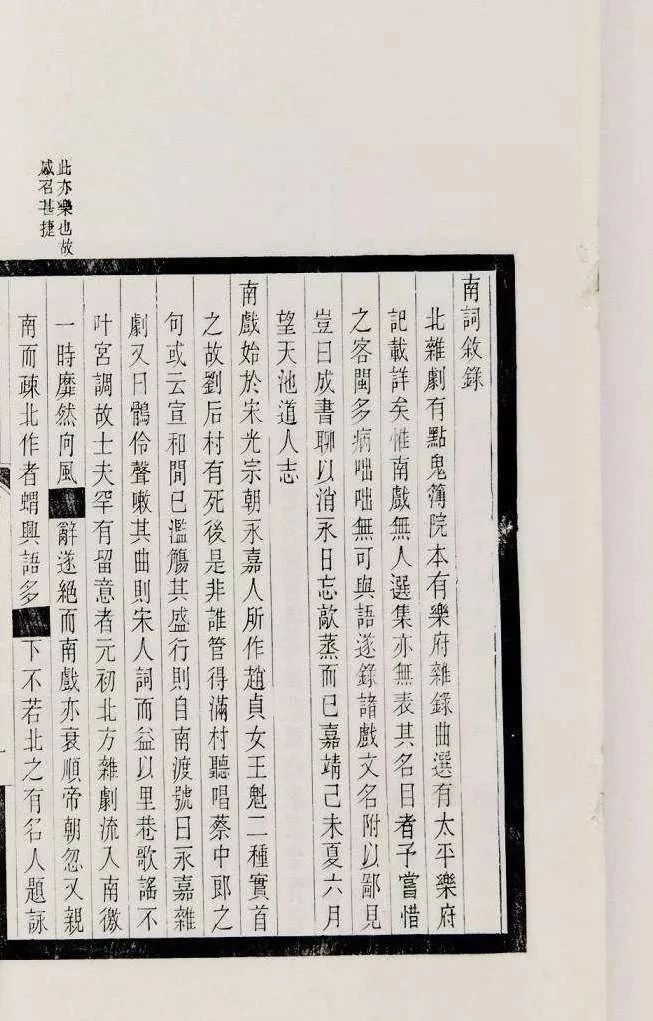 南詞敘錄
北雜劇有點鬼簿院本有樂府雜錄曲選有太平樂府
記載詳矣惟南戲無人選集亦無表其名目者予嘗惜
之客閩多病咄咄無可與語遂錄諸戲文名附以鄙見
豈曰成書聊以消永日忘歊蒸而已嘉靖己未夏六月
望天池道人志
南戲始於宋光宗朝永嘉人所作趙貞女王魁二種實首
之故劉后村有死後是非誰管得滿村聽唱蔡中郎之
句或云宣和間已濫觴其盛行則自南渡號曰永嘉雜
劇又曰鶻伶聲嗽其曲則宋人詞而益以里巷歌謠不
叶宮調故士夫罕有留意者元初北方雜劇流入南徼
一時靡然向風■辭遂絕而南戲亦衰順帝朝忽又親
南而疎北作者蝟興語多■下不若北之有名人題詠
此亦樂也故
感召甚捷